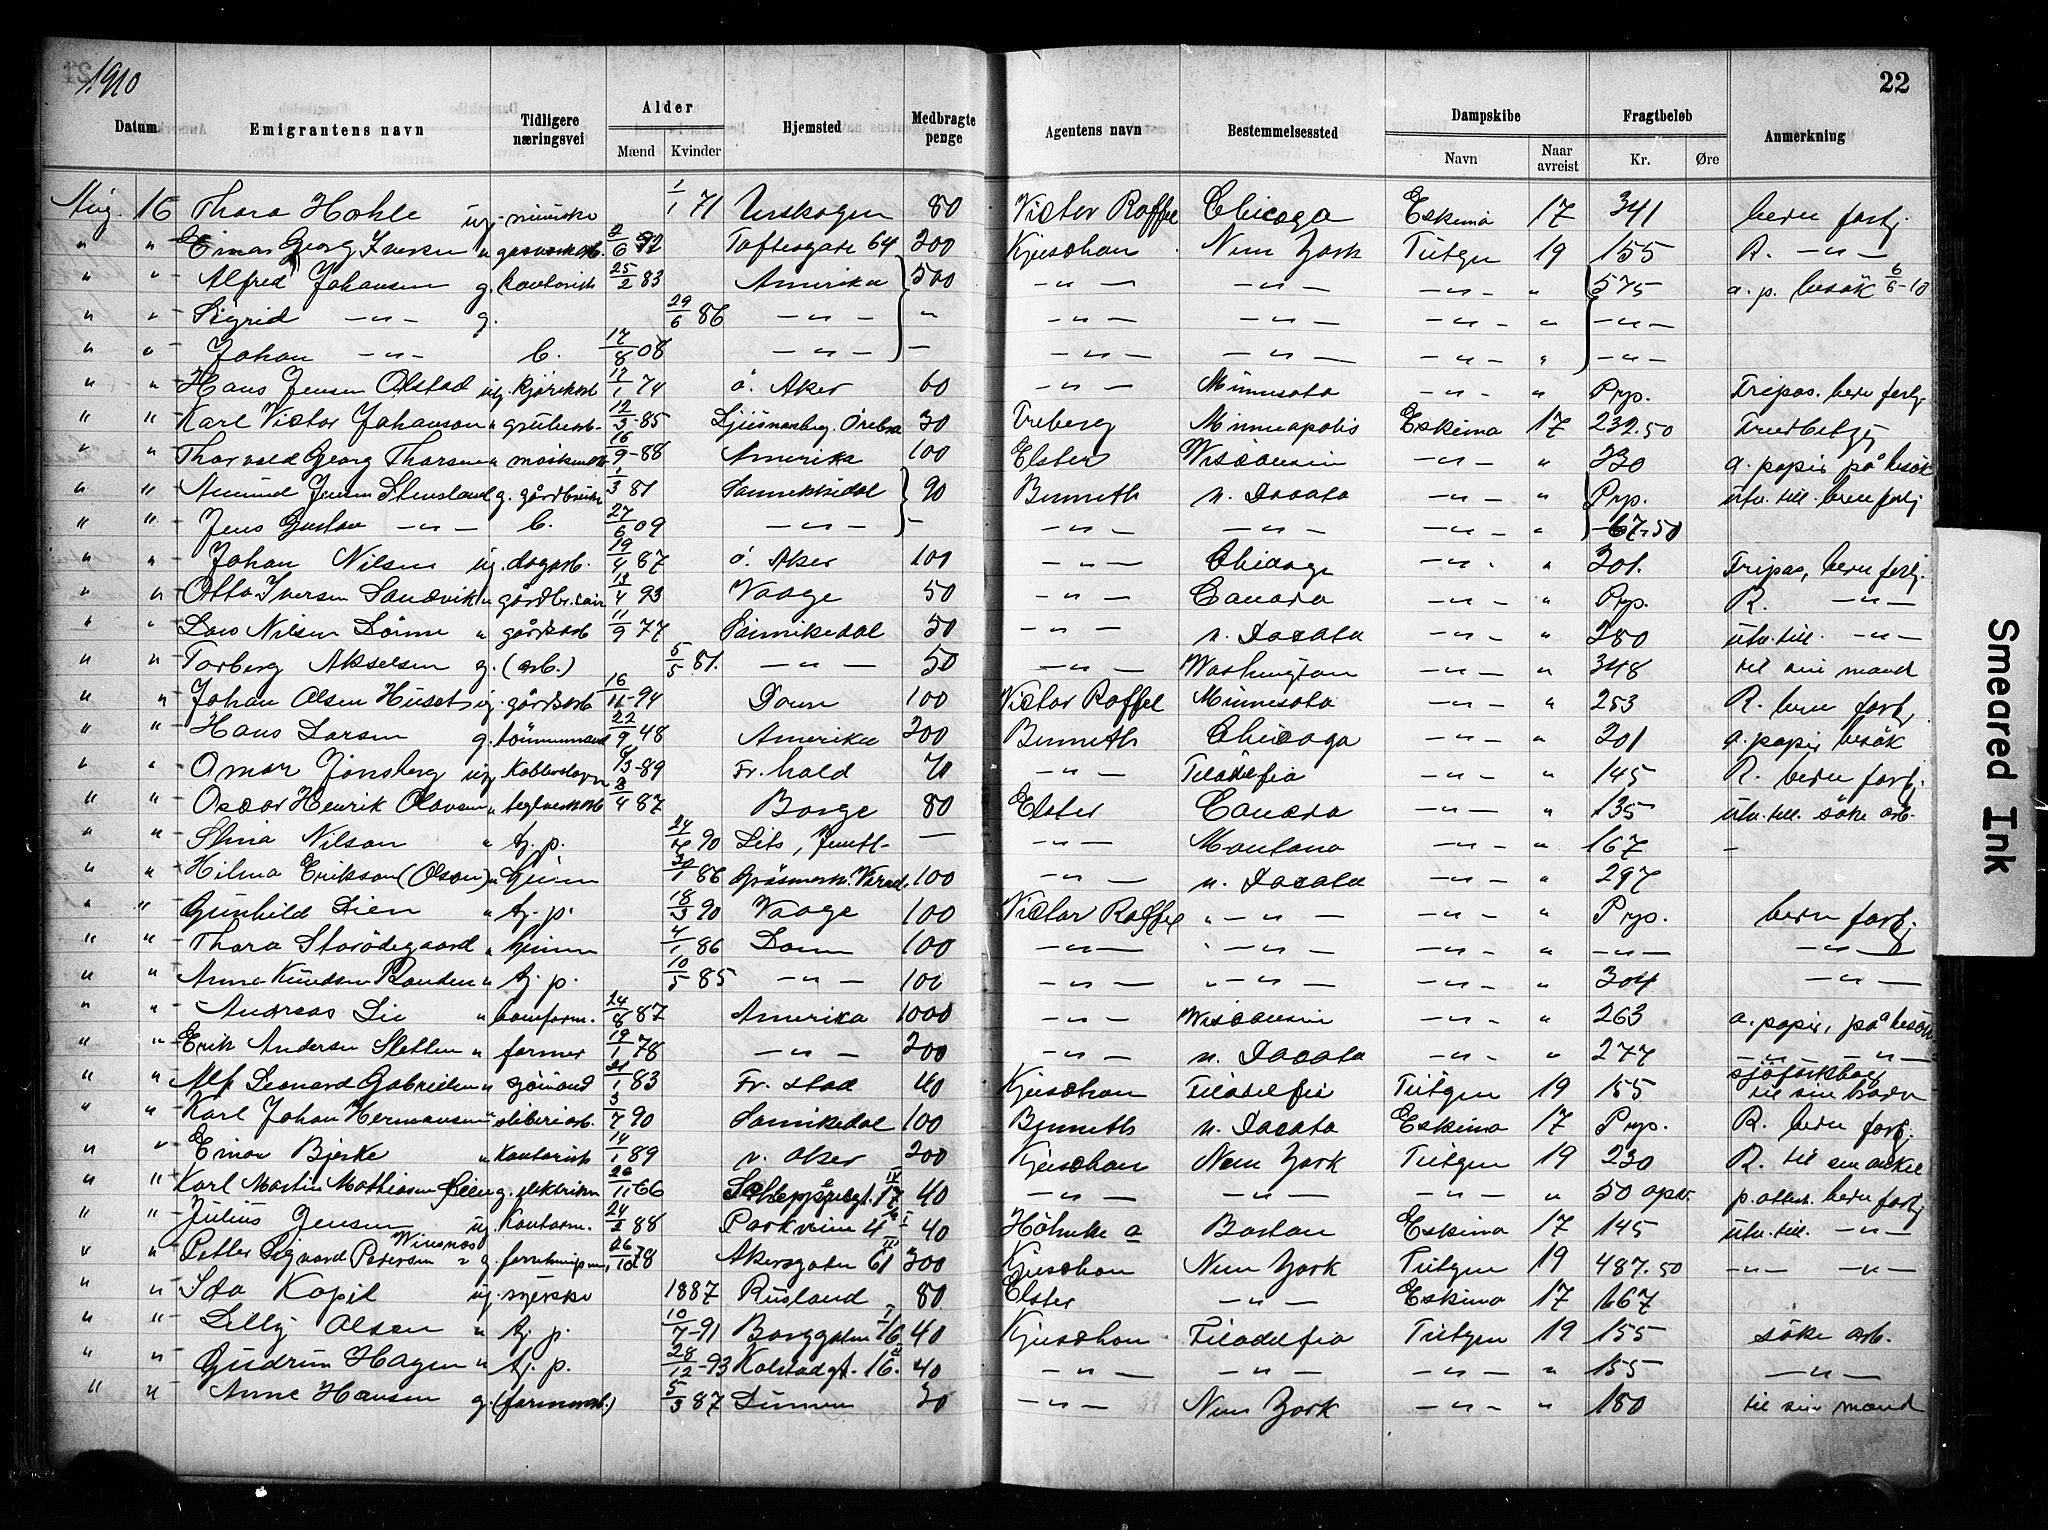 1910
22
Datum Emigrantens navn Tidligere næringsvei Alder Mænd Kvinder Hjemsted Medbragte penge Agentens navn Bestemmelsessted Dampskibe Navn Naar avreist Fragtbeløb Kr. Øre Anmerkning
Aug. 16 Thora Hohle ug. 1/1 71 Urskogen 80 Victor Roffel Chicago Eskimo 17 341 bern forbj
" " Einar Georg Iversen " 2/6 92 Toftesgate 64 200 Kjuschan New York Tietgen 19 155 R. — " —
" " Alfred Johansen g. kontorist 25/2 83 Amerika 500 — " — — " — — " — " 575 a. p. besök 6/6-10
" " Sigrid — " — g. 29/6 86 — " — " — " — — " — — " — " — " —
" " Johan — " — b. 17/8 08 — " — — — " — — " — — " — " — " —
" " Hans Jensen Olstad ug. kjörekarl 17/1 74 ö. Aker 60 — " — Minnesota — " — " Pryp. Tripas. bern forbj.
" " Karl Victor Johanson " grubearb. 12/3-85 Ljusnarsberg. Örebro 30 Treberg Minneapolis Eskimo 17 232.50
" " Thorvald Georg Thorsen " 16/9-88 Amerika 100 Elster Wisconsin — " — " 230 a. papir på besök
" " Amund Jensen Stensland g. gårdbruker 1/3 81 Sannikedal 90 Bennett n. Dacota — " — " Pryp. utv. till. bern forbj
" " Jens Gustav — " — b. 27/6 09 — " — — — " — — " — — " — " 67.50
" " Johan Nilsen ug. dagarb. 19/4 87 ö. Aker 100 — " — Chicago — " — " 301. Tripas, bern forbj.
" " Otto Iversen Sandvik " 13/4 93 Vaage 50 — " — Canada — " — " Pryp. R. — " —
" " Lars Nilsen Lönne " gårdsarb 11/9 77 Sannikedal 50 — " — n. Dacota — " — " 280 utv. till. — " —
" " Torberg Akselsen g. (arb.) 5/5 81. — " — 50 — " — Washington — " — " 348 til sin mand
" " Johan Olsen Huset ug. gårdsarb 16/11-94 Dovre 100 Victor Roffel Minnesota — " — " 253 R. bern forbj
" " Hans Larsen g. tömmermand 22/9 48 Amerika 200 Bennett Chicago — " — " 201 a. papir besök
" " Omar Jönsberg ug 4/3-89 Fr. hald 70 — " — Filadelfia — " — " 145 R. bern forbj
" " Oscar Henrik Olavsen " teglverksarb 3/4 87 Borge 80 Elster Canada — " — " 135 utv. till. söke arb.
" " Stina Nilson " tj. p. 24/7 90 Lits, Jemtl- — — " — Montana — " — " 167 -
" " Hilma Erikson (Olson) " hjem 30/1 86 Gräsmark. Värml. 100 — " — n. Dacota — " — " 297
" " Gunhild Lien " tj. p. 18/3 90 Vaage 100 Victor Roffel — " — — " — " Pryp. bern forbj
" " Thora Storödegaard " hjem 4/1 86 Dovre 100 — " — — " — — " — " — " — — " —
" " Anne Knudsen Randen " tj. p. 10/5 85 — " — 100 — " — — " — — " — " 304 — " —
" " Andreas Lie " 24/8 87 Amerika 1000 — " — Wisconsin — " — " 263 a. papir, på besök
" " Erik Andersen Sletten " farmer 19/1 78 — " — 200 — " — n. Dacota — " — " 277 — " — " —
" " Alf Leonard Gabrielsen " sjömand 21/1 83 Fr. stad 40 Kjuschan Filadelfia Tietgen 19 155 til sin broder
" " Karl Johan Hermansen " sliberiarb. 3/7 90 Sannikedal 100 Bennett n. Dacota Eskimo 17 Pryp. R. bern forbj.
" " Einar Bjerke " kontorist 14/1 89 v. Aker 200 Kjuschan New York Tietgen 19 230 R. til sin onkel
" " Karl Martin Mathiasen Lien g. elektriker 26/11 66 17 40 — " — — " — — " — " 50 p. attest. bern forbj
" " Julius Jensen ug. Kontorm. 24/2 88 Parkveien 4 40 Höhnke a Boston Eskimo 17 145 utv. till. — " —
" " Petter Sigvard Petersen Winsnes g. forretningsm. 26/10 78 Akersgaten 61 200 Kjuschan New York Tietgen 19 487.50 — " — — " —
" " Ida Kopil ug. syerske 1887 Rusland 80 Elster — " — Eskimo 17 167
" " Lilly Olsen " tj. p. 10/7-91 Borggaten 16 40 Kjuschan Filadelfia Tietgen 19 155 söke arb.
" " Gudrun Hagen " tj. p. 28/12-93 Kolstadgt. 16. 40 — " — — " — — " — " 155 — " —
" " Anne Hansen g. (farmerarb.) 5/3 87 Lunner 30 — " — New York — " — " 180 til sin mand
Smeared Ink